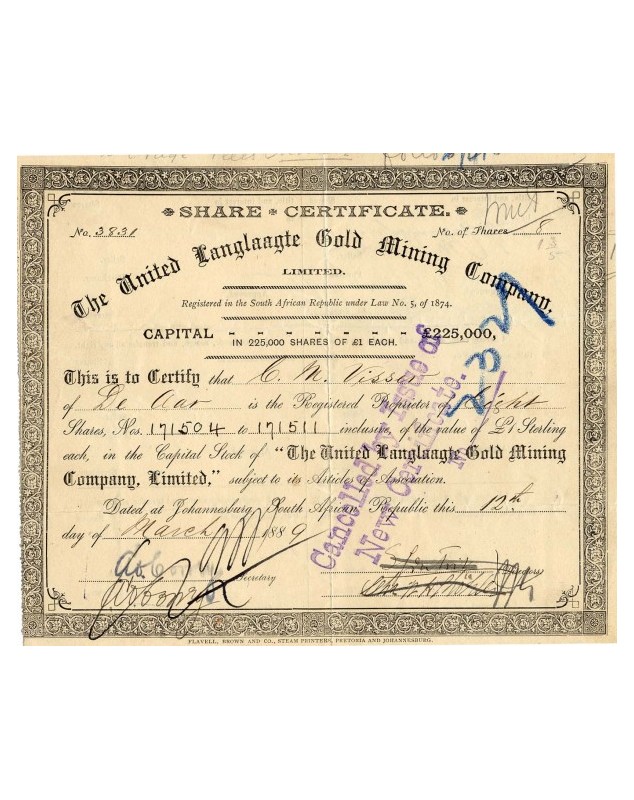 SHARE CERTIFICATE.
No. 3831 No. of Shares 8
The United Langlaagte Gold Mining Company,
LIMITED.
Registered in the South African Republic under Law No. 5, of 1874.
CAPITAL - - - - - - - - £225,000,
IN 225,000 SHARES OF £1 EACH.
This is to Certify that C. M. Visser
of De Aar is the Registered Proprietor of Eight
Shares, Nos. 171504 to 171511 inclusive, of the value of £1 Sterling
each, in the Capital Stock of "The United Langlaagte Gold Mining
Company, Limited," subject to its Articles of Association.
Dated at Johannesburg, South African Republic this 12th
day of March 1889
Secretary
Directors
Cancelled by Issue of
New Certificate.
FLAVELL, BROWN AND CO., STEAM PRINTERS, PRETORIA AND JOHANNESBURG.